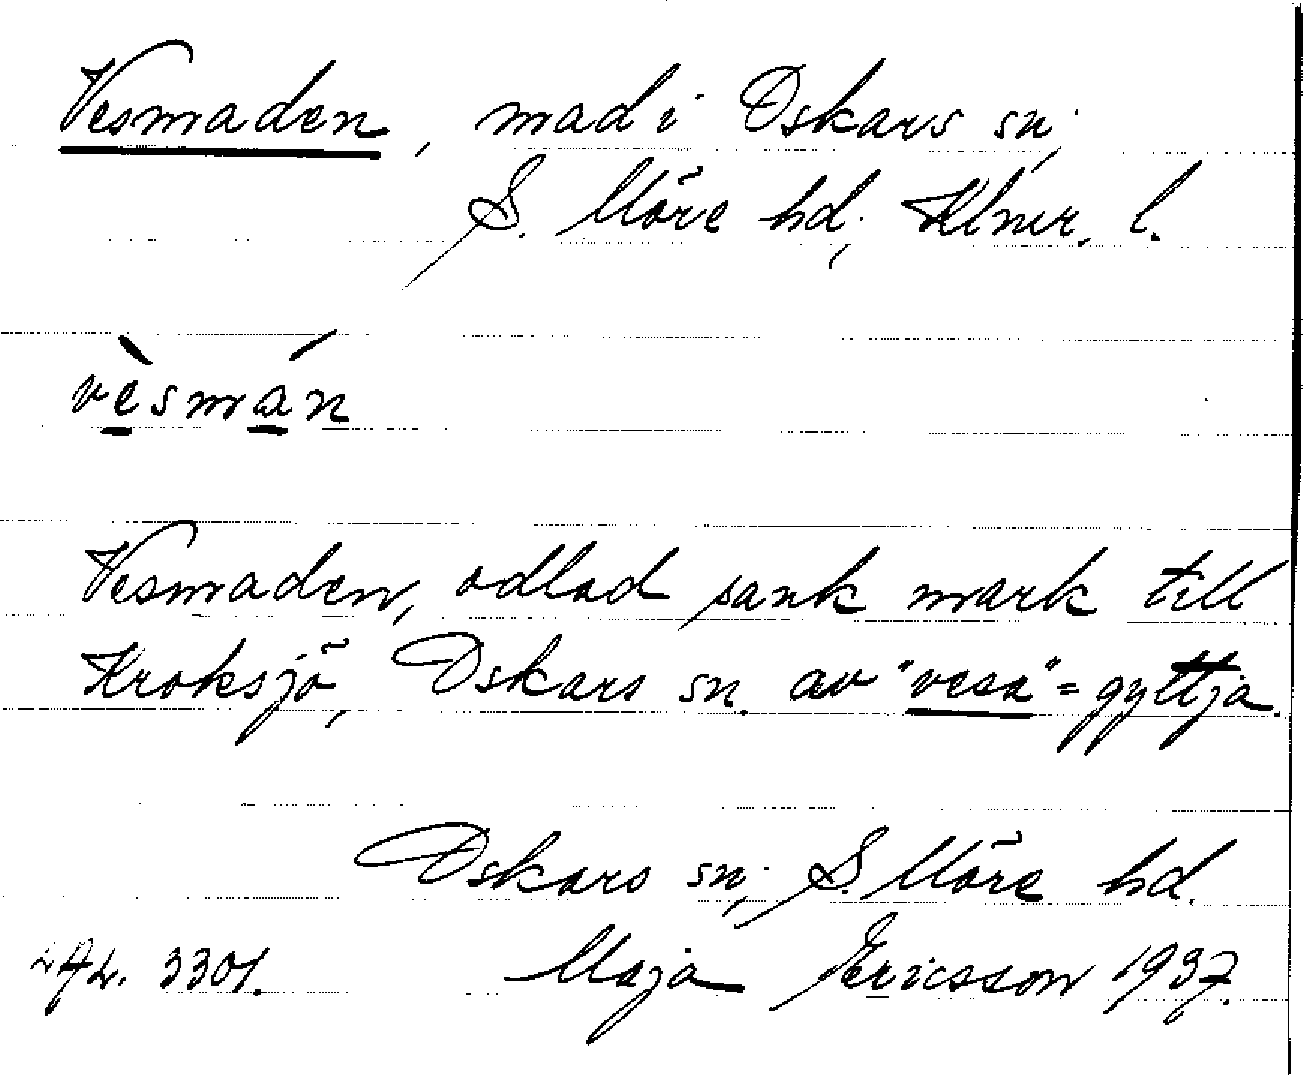 Vesmaden, mad i Oskars sn,
S. Möre hd, Klmr. l.
vèsmán
Vesmaden, odlad sank mark till
Kroksjö, Oskars sn. av "vesa" = gyttja.
Oskars sn, S. Möre hd.
3301. Maja Ericsson 1937.